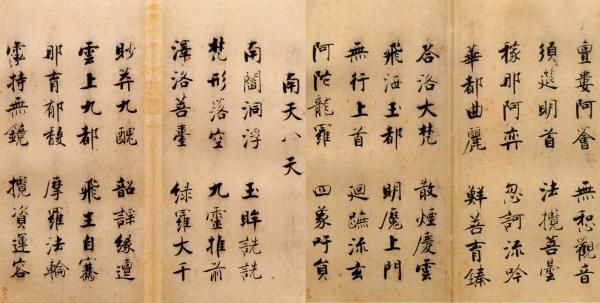 亶婁阿薈 無惒觀音
須延明首 法攬菩曇
稼那阿弈 忽訶流吟
華都曲麗 鮮善育臻
荅洛大梵 散煙慶雲
飛洒玉都 明魔上門
無行上首 迴蹠流玄
阿陁龍羅 四象吁員
南天八天
南閻洞浮 玉眸詵詵
梵形落空 九靈推前
澤洛菩臺 綠羅大千
眇莽九醜 韶謠緣邅
雲上九都 飛生自騫
那育郁馥 摩羅法輪
霐持無鏡 攬資運容